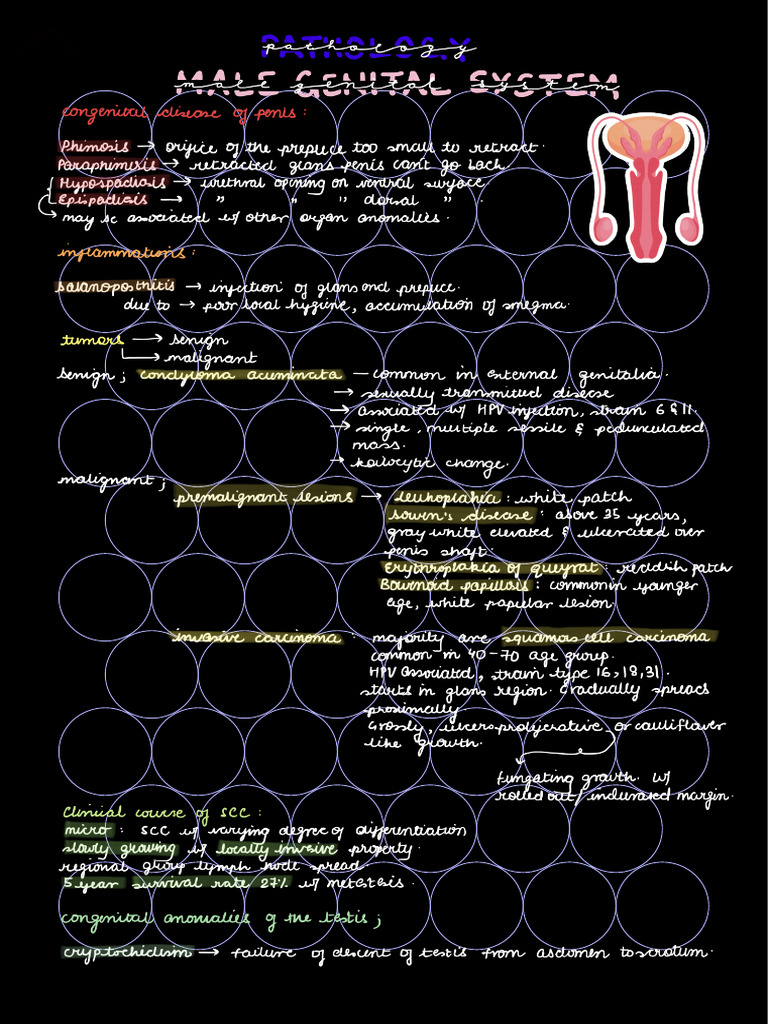 PATHOLOGY
pathology
MALE GENITAL SYSTEM
male genital system
congenital disease of penis :
Phimosis → orifice of the prepuce too small to retract.
Paraphimisis → retracted glans penis can't go back.
Hypospadiasis → urethral opening on ventral surface
Epispadiasis → " " " dorsal " .
→ may be associated w/ other organ anomalies .
inflammations :
balanoposthitis → infection of glans and prepuce.
due to → poor local hygine, accumulation of smegma.
tumors → benign
→ malignant
benign ; condyloma acuminata — common in external genitalia.
→ sexually transmitted disease
→ associated w/ HPV infection, strain 6 & 11.
→ single, multiple sessile & pedunculated
mass.
→ koilocytic change.
malignant ;
premalignant lesions → leukoplakia : white patch
Bowen's disease : above 35 years,
gray white elevated & ulcerated over
penis shaft.
Erythroplakia of queyrat : reddish patch
Bowenoid papillosis : common in younger
age, white papular lesion
invasive carcinoma : majority are squamos cell carcinoma
common in 40-70 age group.
HPV associated, strain type 16,18,31.
starts in glans region. Gradually spreads
proximally
Grossly, ulceroproliferative or cauliflower
like growth.
fungating growth w/
rolled out / indurated margin.
Clinical course of SCC :
micro : SCC w/ varying degree of differentiation
slowly growing w/ locally invasive property.
regional group lymph node spread
5 year survival rate 27% w/ metastasis .
congenital anomalies of the testis ;
cryptochidism → failure of descent of testis from abdomen to scrotum.